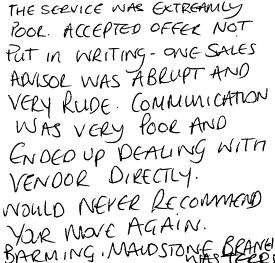 THE SERVICE WAS EXTREAMLY
POOR. ACCEPTED OFFER NOT
PUT IN WRITING - ONE SALES
ADVISOR WAS ABRUPT AND
VERY RUDE. COMMUNICATION
WAS VERY POOR AND
ENDED UP DEALING WITH
VENDOR DIRECTLY.
WOULD NEVER RECOMMEND
YOUR MOVE AGAIN.
BARMING, MAIDSTONE BRANCH
WAS